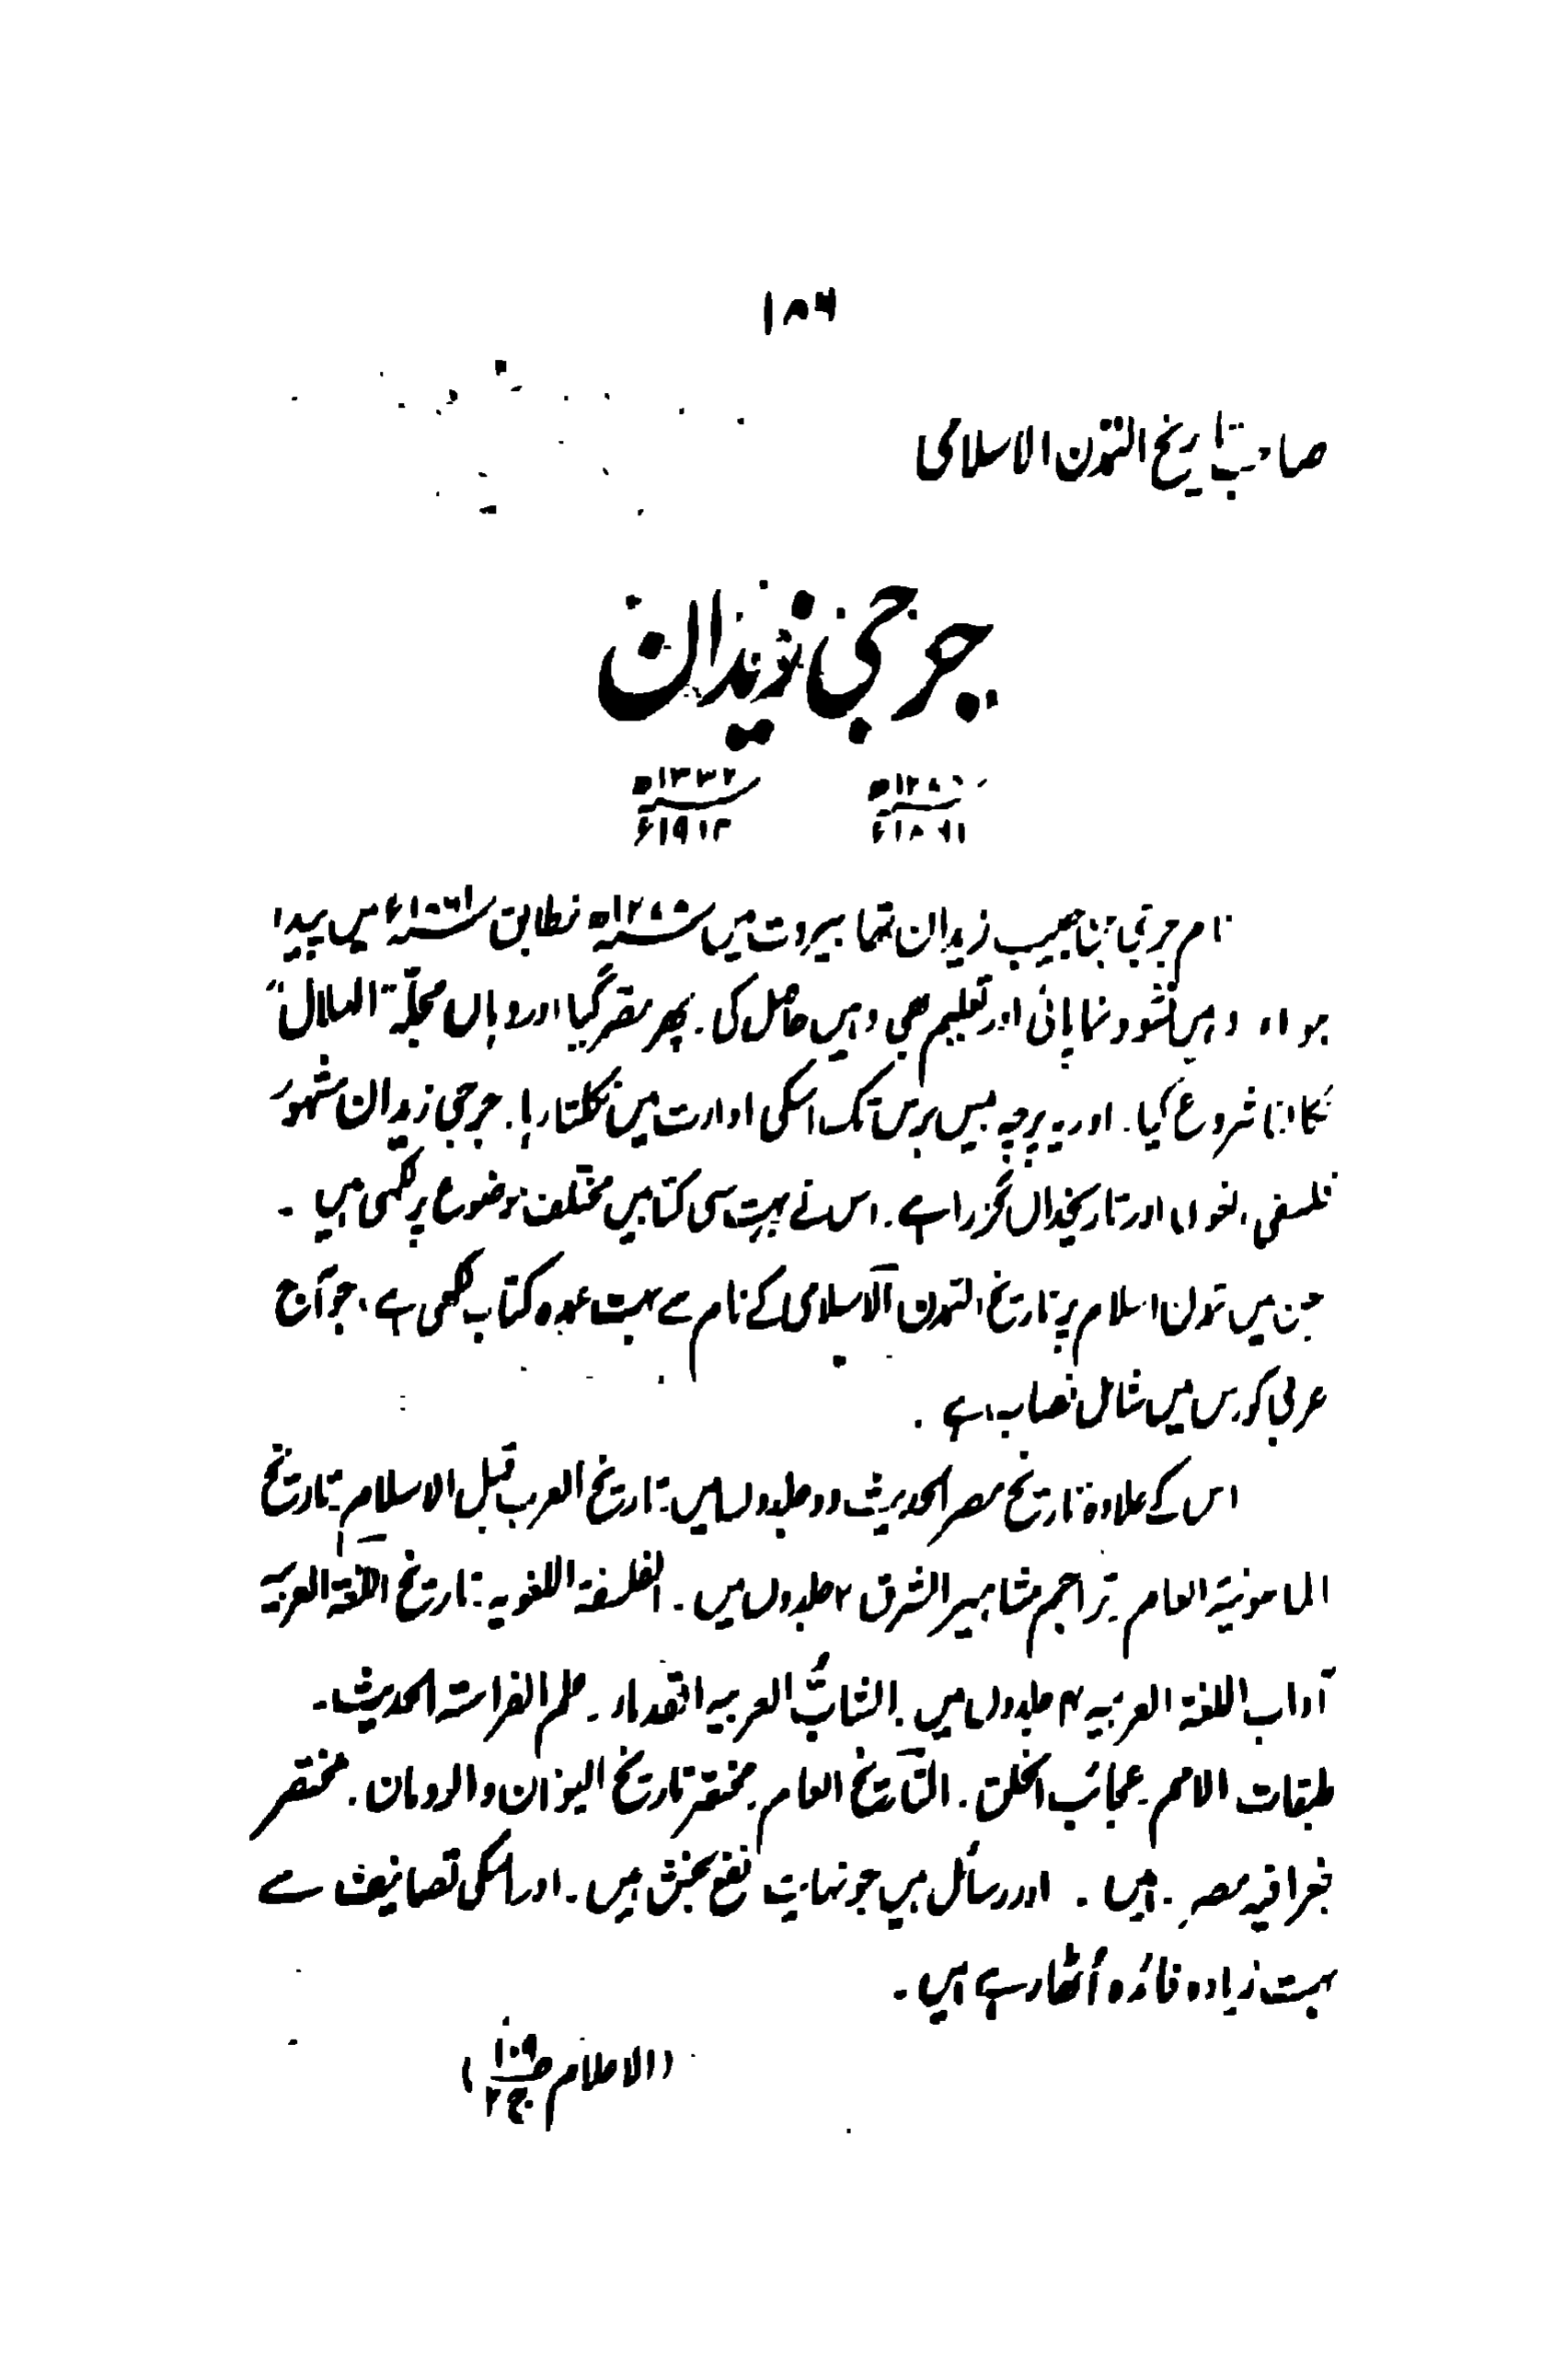 ۱۸۶
صاحب تاریخ التمدن الاسلامی
جرجی زیدان
۱۲۸۰ھ ۱۳۳۲ھ
۱۸۶۱ء ۱۹۱۴ء
نام جرجی بن حبیب زیدان تھا بیروت میں ۱۲۸۰ھ مطابق ۱۸۶۱ء میں پیدا
ہوا، وہیں نشوونما پائی اور تعلیم بھی وہیں حاصل کی۔ پھر مصر گیا اور وہاں مجلّہ "الہلال"
نکالنا شروع کیا۔ اور یہ پرچہ بیس برس تک اسکی ادارت میں نکلتا رہا۔ جرجی زیدان مشہور
فلسفی، لغوی اور تاریخداں گزرا ہے۔ اس نے بہت سی کتابیں مختلف موضوع پر لکھی ہیں۔
جن میں تمدن اسلام پر تاریخ التمدن الاسلامی کے نام سے بہت عمدہ کتاب لکھی ہے، جو آج
عربی کورس میں شامل نصاب ہے۔
اس کے علاوہ تاریخ مصر الحدیث دو جلدوں میں۔ تاریخ العرب قبل الاسلام۔ تاریخ
الماسونیۃ العام۔ تراجم مشاہیر الشرق ۲ جلدوں میں۔ الفلسفۃ اللغویہ۔ تاریخ اللغۃ العربیہ
آداب اللغۃ العربیہ ۴ جلدوں میں۔ انساب العربیہ القدماء۔ علم الفراستہ الحدیث۔
طبقات الامم۔ عجائب الخلق۔ التاریخ العام۔ مختصر تاریخ الیونان والرومان۔ مختصر
جغرافیہ مصر۔ ہیں۔ اور رسائل ہیں جو نہایت نفع بخش ہیں۔ اور اسکی تصانیف سے
بہت زیادہ فائدہ اُٹھا رہے ہیں۔
(الاعلام ص۱۰۹ ج۲)